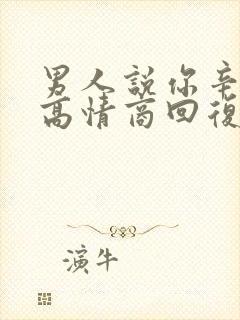 男人說你辛
高情商回復
演牛